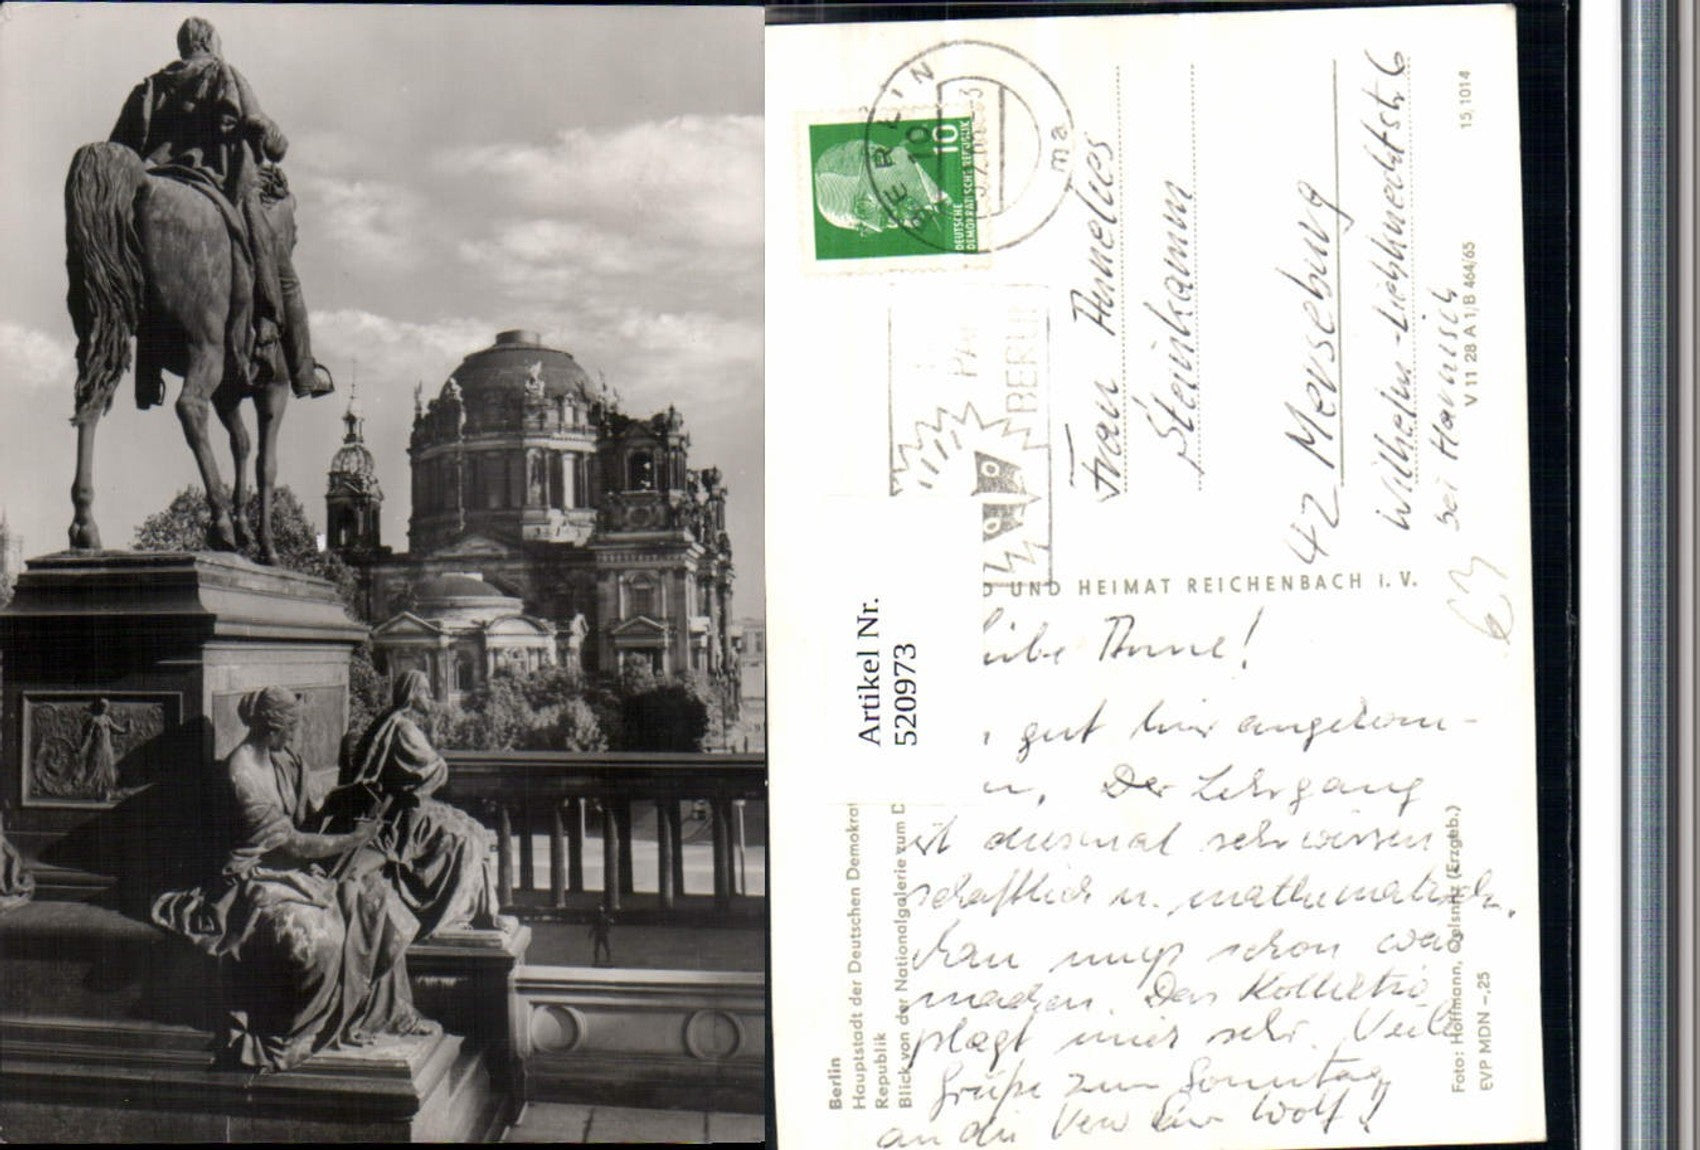 BERLIN
10
DEUTSCHE
DEMOKRATISCHE REPUBLIK
BERLIN
Frau Annelies
Steinkamm
42 Merseburg
Wilhelm-Liebknechtstr. 6
bei Harnisch
15 1014
V 11 28 A 1/B 464/65
D UND HEIMAT REICHENBACH i. V.
63
Artikel Nr.
520973
Liebe Anne!
gut hier angekom-
Der Lehrgang
ist diesmal sehr wissen
schaftlich u. mathematisch.
Man muß schon was
machen. Das
plagt mich sehr. Viele
Grüße zum Sonntag
an die Wolf!
Berlin
Hauptstadt der Deutschen Demokrat
Republik
Blick von der Nationalgalerie zum D
Foto: Hoffmann, Oelsnitz (Erzgeb.)
EVP MDN -,25